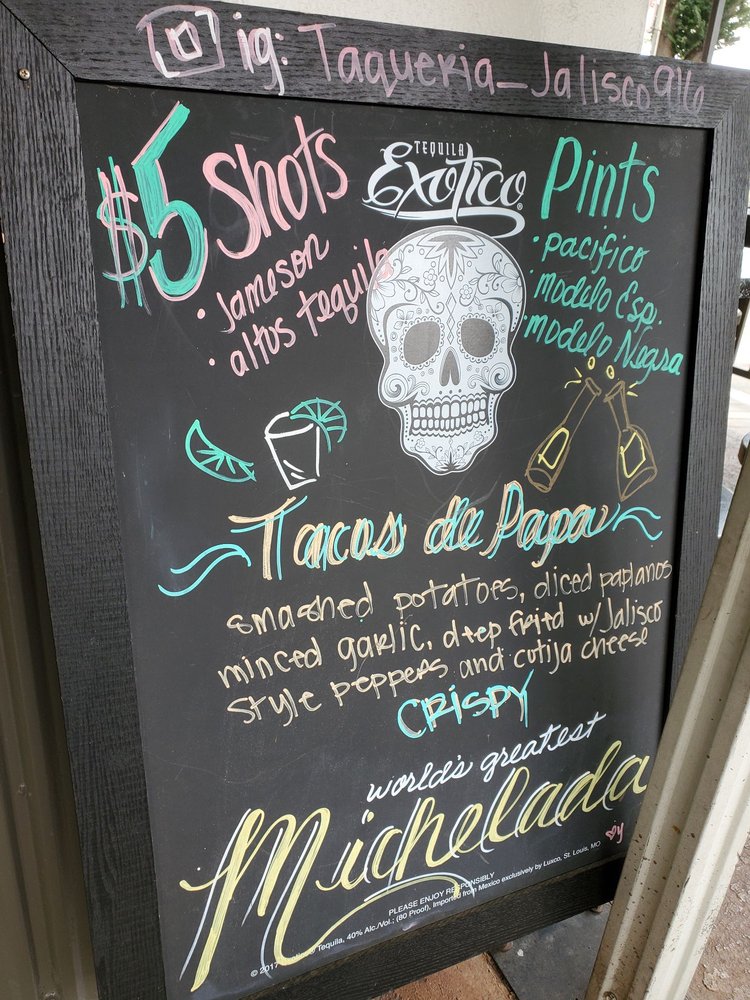 ig: Taqueria_Jalisco916
$5 Shots
• Jameson
• altos tequila
TEQUILA
Exotico®
Pints
• pacifico
• modelo Esp.
• modelo Negra
Tacos de Papa
smashed potatoes, diced paplanos
minced garlic, deep fried w/Jalisco
style peppers and cutija cheese
CRISPY
world's greatest
Michelada
PLEASE ENJOY RESPONSIBLY
© 2017 Tequila, 40% Alc./Vol.; (80 Proof), Imported from Mexico exclusively by Luxco, St. Louis, MO